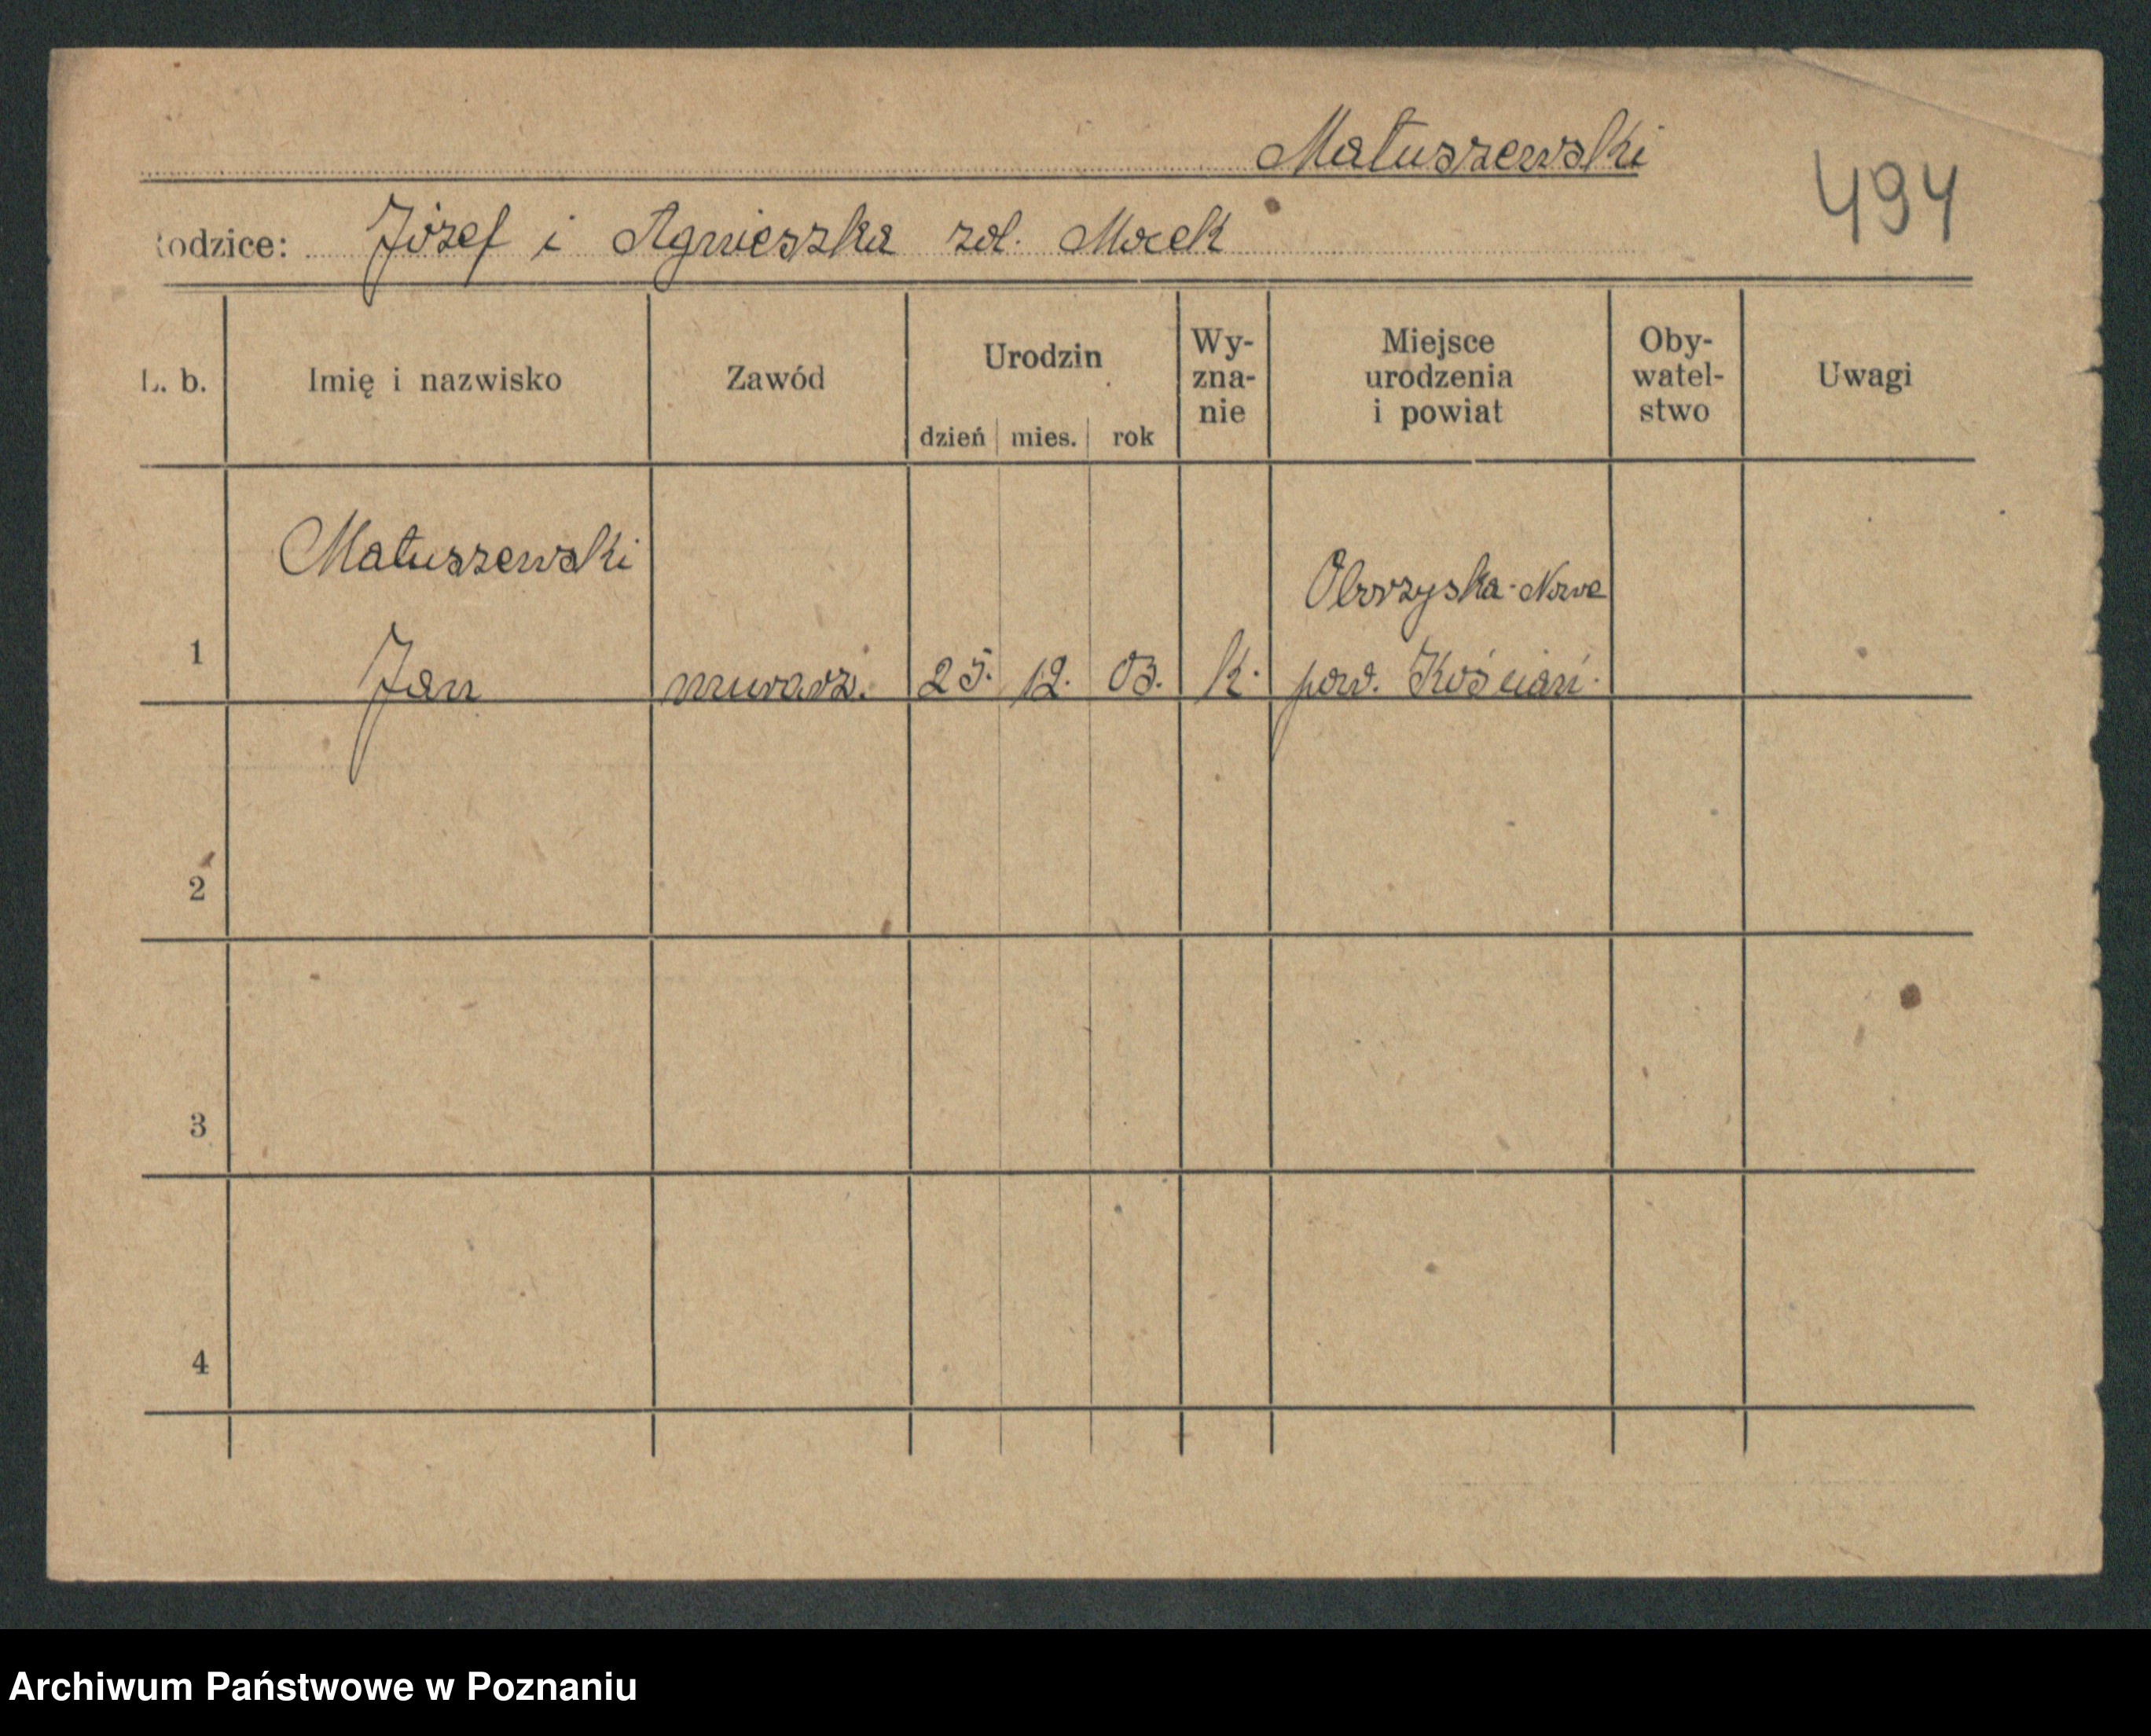 Matuszewski
494
Rodzice: Józef i Agnieszka zd. Mocek
L. b. Imię i nazwisko Zawód Urodzin dzień mies. rok Wy-zna-nie Miejsce urodzenia i powiat Oby-watel-stwo Uwagi
Matuszewski Oborzyska-Nowe
1 Jan murarz. 25. 12. 03. k. pow. Kościań.
2
3
4
Archiwum Państwowe w Poznaniu